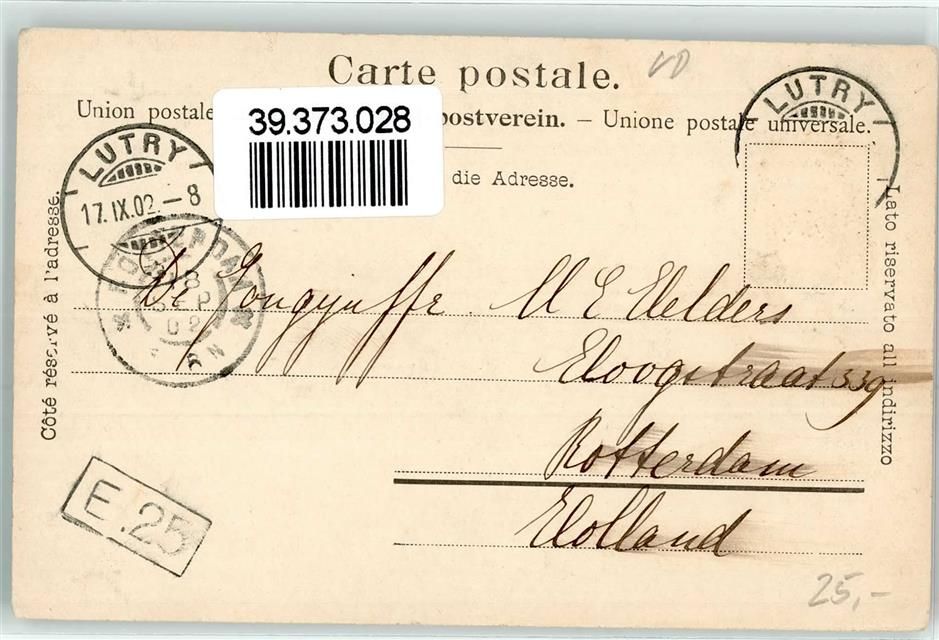 Carte postale. VD
Union postale postverein. – Unione postale universale.
39.373.028
die Adresse.
LUTRY
17.IX.02.–8
LUTRY
18
SEP
02
Côté réservé à l'adresse.
Lato riservato all indirizzo
De Jongejuffr. M E Elders
Hoogstraat 339
Rotterdam
Holland
E.25
25,-